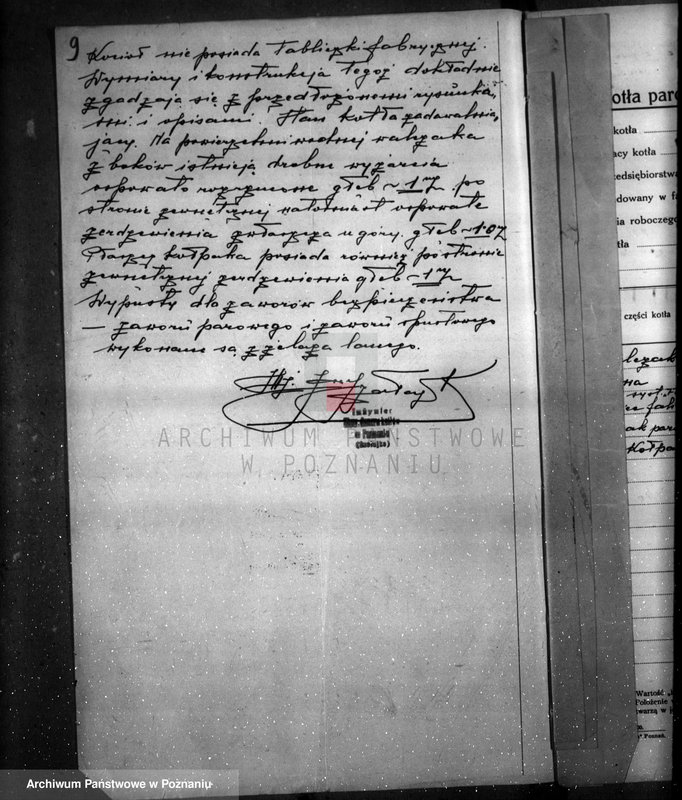 9
Kocioł nie posiada tabliczki fabrycznej.
Wymiary i konstrukcja tegoż dokładnie
zgadzają się z przedłożonemi rysunka-
mi i opisami. Stan kotła zadawalnia-
jący. Na powierzchni wodnej walczaka
z boków istnieją drobne wyżarcia
ospowato głęb ~ 1 m/m po
stronie zewnętrznej natomiast ospowate
zerdzewienia zwłaszcza u góry. głęb ~
Płaszcz kołpaka posiada również po stronie
zewnętrznej zerdzewienia głęb ~ 1 m/m
Wypusty dla zaworów bezpieczeństwa
— zaworu parowego i zaworu spustowego
wykonane są z żelaza lanego.
Inżynier
w Poznaniu
ARCHIWUM PAŃSTWOWE
W POZNANIU
kotła par
kotła
acy kotła
zedsiębiorstwa
dowany w fa
ia roboczego
tła
części kotła
na
ak par
Kołpa
Wartość
Położenie
twarzą w
Poznań.
Archiwum Państwowe w Poznaniu